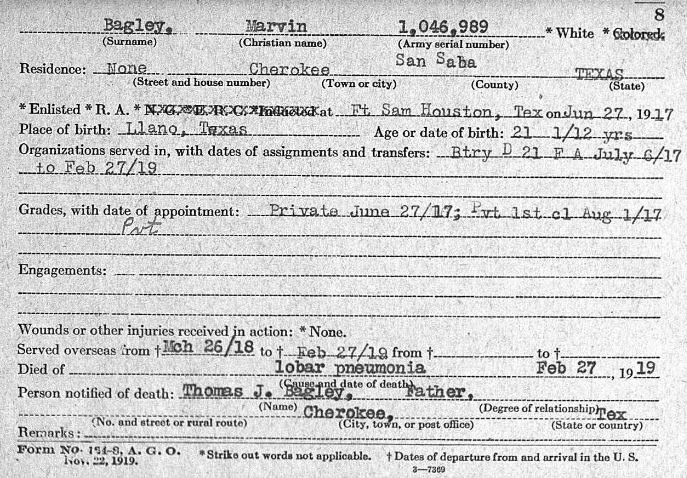 8
Bagley, Marvin 1,046,989 * White * Colored.
(Surname) (Christian name) (Army serial number)
Residence: None Cherokee San Saba TEXAS
(Street and house number) (Town or city) (County) (State)
* Enlisted * R. A. * N. G. * E. R. C. * Inducted at Ft Sam Houston, Tex on Jun 27, 1917
Place of birth: Llano, Texas Age or date of birth: 21 1/12 yrs
Organizations served in, with dates of assignments and transfers: Btry D 21 F A July 6/17
to Feb 27/19
Grades, with date of appointment: Private June 27/17; Pvt 1st cl Aug 1/17
Pvt
Engagements:
Wounds or other injuries received in action: * None.
Served overseas from † Mch 26/18 to † Feb 27/19 from † to †
Died of lobar pneumonia Feb 27, 1919
(Cause and date of death)
Person notified of death: Thomas J. Bagley, Father,
(Name) (Degree of relationship)
Cherokee, Tex
(No. and street or rural route) (City, town, or post office) (State or country)
Remarks:
Form No. 724-8, A. G. O. * Strike out words not applicable. † Dates of departure from and arrival in the U. S.
Nov. 22, 1919. 3—7369